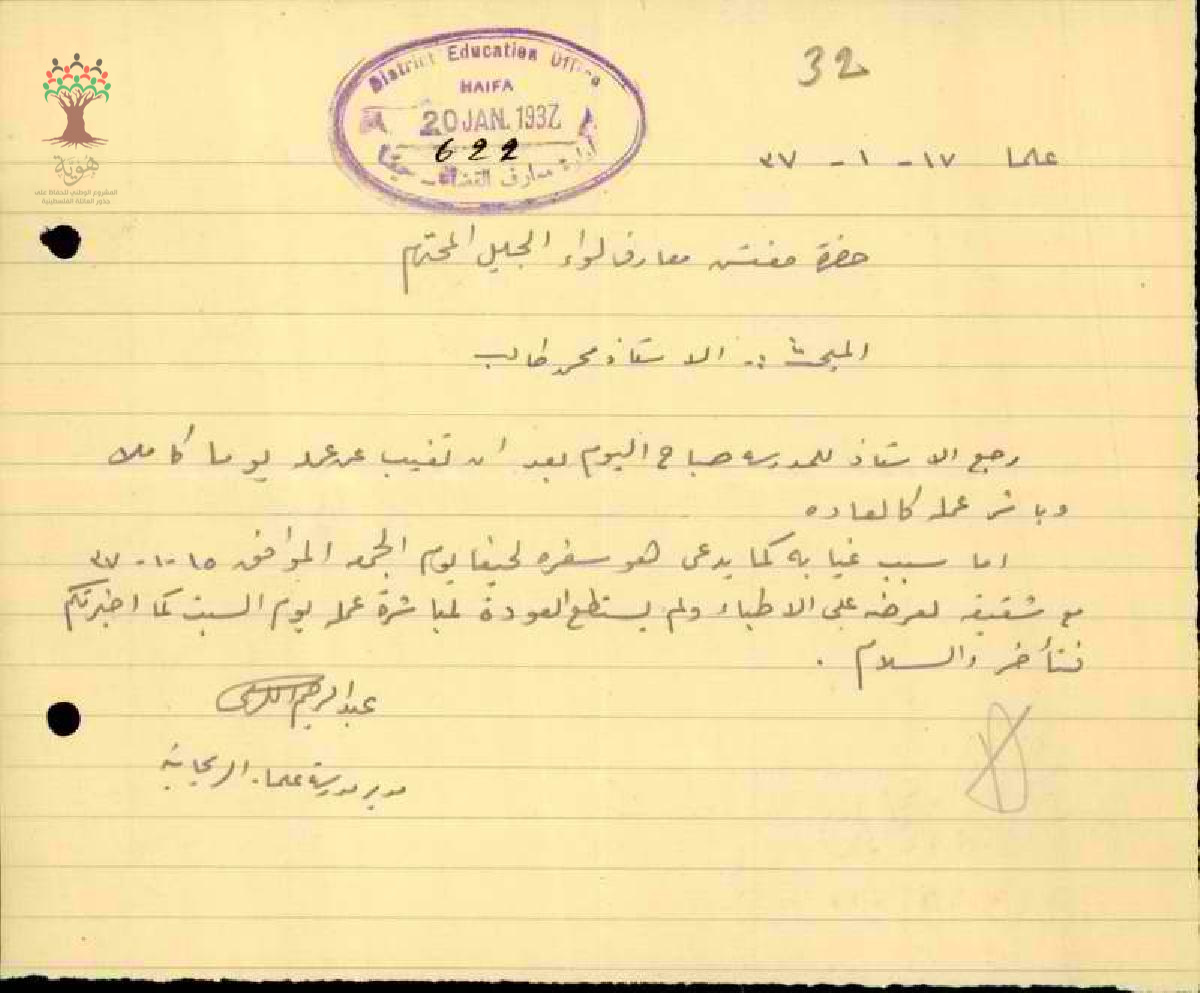 32
District Education Office
HAIFA
20 JAN. 1937
622
ادارة معارف القضاء حيفا
هوية
المشروع الوطني للحفاظ على
جذور العائلة الفلسطينية
علما ١٧ - ١ - ٣٧
حضرة مفتش معارف لواء الجليل المحترم
المبحث :. الاستاذ محمد طالب
رجع الاستاذ للمدرسه صباح اليوم بعد ان تغيب عن عمله يوما كاملا
وباشر عمله كالعاده
اما سبب غيابه كما يدعى هو سفره لحيفا يوم الجمعه الموافق ١٥-١-٣٧
مع شقيقه لعرضه على الاطباء ولم يستطع العودة لمباشرة عمله يوم السبت كما اخبرتكم
فتأخر والسلام .
عبد الرحيم
مدير مدرسة علما - الريحانية